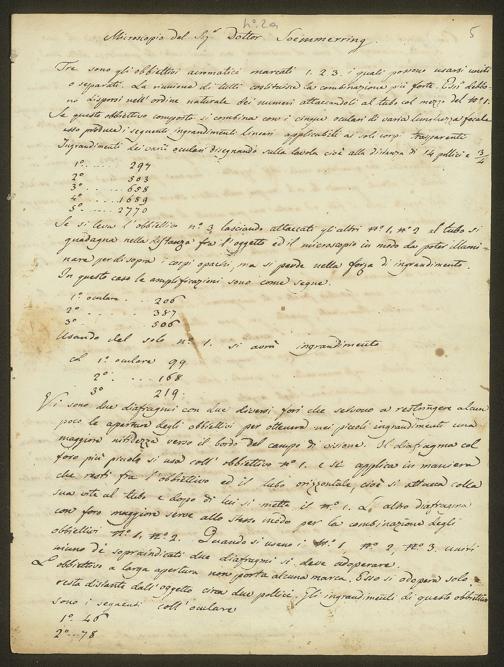 N.º 2a
5
Microscopio del Sig.r Dottor Soemmerring.
Tre sono gli obbiettivi acromatici marcati 1. 2. 3. i quali possono usarsi uniti
o separati. La riunione di tutti costituisce la combinazione più forte. Essi debbo-
no disporsi nell'ordine naturale dei numeri attaccandoli al tubo col mezzo del N.º 1.
Se questo obbiettivo composto si combina con i cinque oculari di varia lunghezza focale
esso produce i seguenti ingrandimenti lineari applicabili ai soli corpi trasparenti
Ingrandimenti dei varii oculari disegnando sulla tavola cioè alla distanza di 14 pollici e 3/4
1.º ..... 297
2.º ...... 503
3.º ..... 658
4.º ..... 1689
5.º ..... 2770
Se si leva l'obbiettivo n.º 3 lasciando attaccati gli altri N.º 1. N.º 2 al tubo si
guadagna nella distanza fra l'oggetto ed il microscopio in modo da poter illumi-
nare per di sopra i corpi opachi, ma si perde nella forza di ingrandimento.
In questo caso le amplificazioni sono come segue.
1.º oculare . 206
2.º ..... 387
3.º ..... 506
Usando del solo N.º 1. si avrà ingrandimento
col 1.º oculare 99
2.º ..... 168
3.º 219.
Vi sono due diafragmi con due diversi fori che servono a restringere alcun
poco le aperture degli obbiettivi per ottenere nei piccoli ingrandimenti una
maggiore nitidezza verso il bordo del campo di visione. Il diafragma col
foro più piccolo si usa coll'obbiettivo N.º 1. e si applica in maniera
che resti fra l'obbiettivo ed il tubo orizzontale, cioè si attacca colla
sua vite al tubo e dopo di lui si mette il N.º 1. L'altro diafragma
con foro maggiore serve allo stesso modo per la combinazione degli
obbiettivi N.º 1, N.º 2. Quando si usano i N.º 1, N.º 2, N.º 3. uniti
niuno de' sopraindicati due diafragmi si deve adoperare.
L'obbiettivo a larga apertura non porta alcuna marca. Esso si adopera solo
resta distante dall'oggetto circa due pollici. Gli ingrandimenti di questo obbiettivo
sono i seguenti coll'oculare
1.º 46
2.º 78